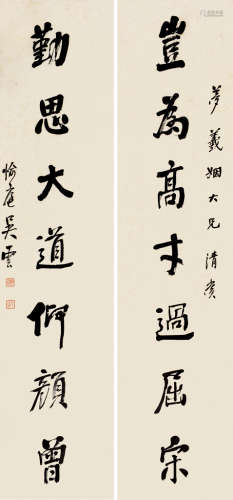 夢羲姻大兄清賞
豈為高才過屈宋
勤思大道仰顏曾
愉庭吳雲